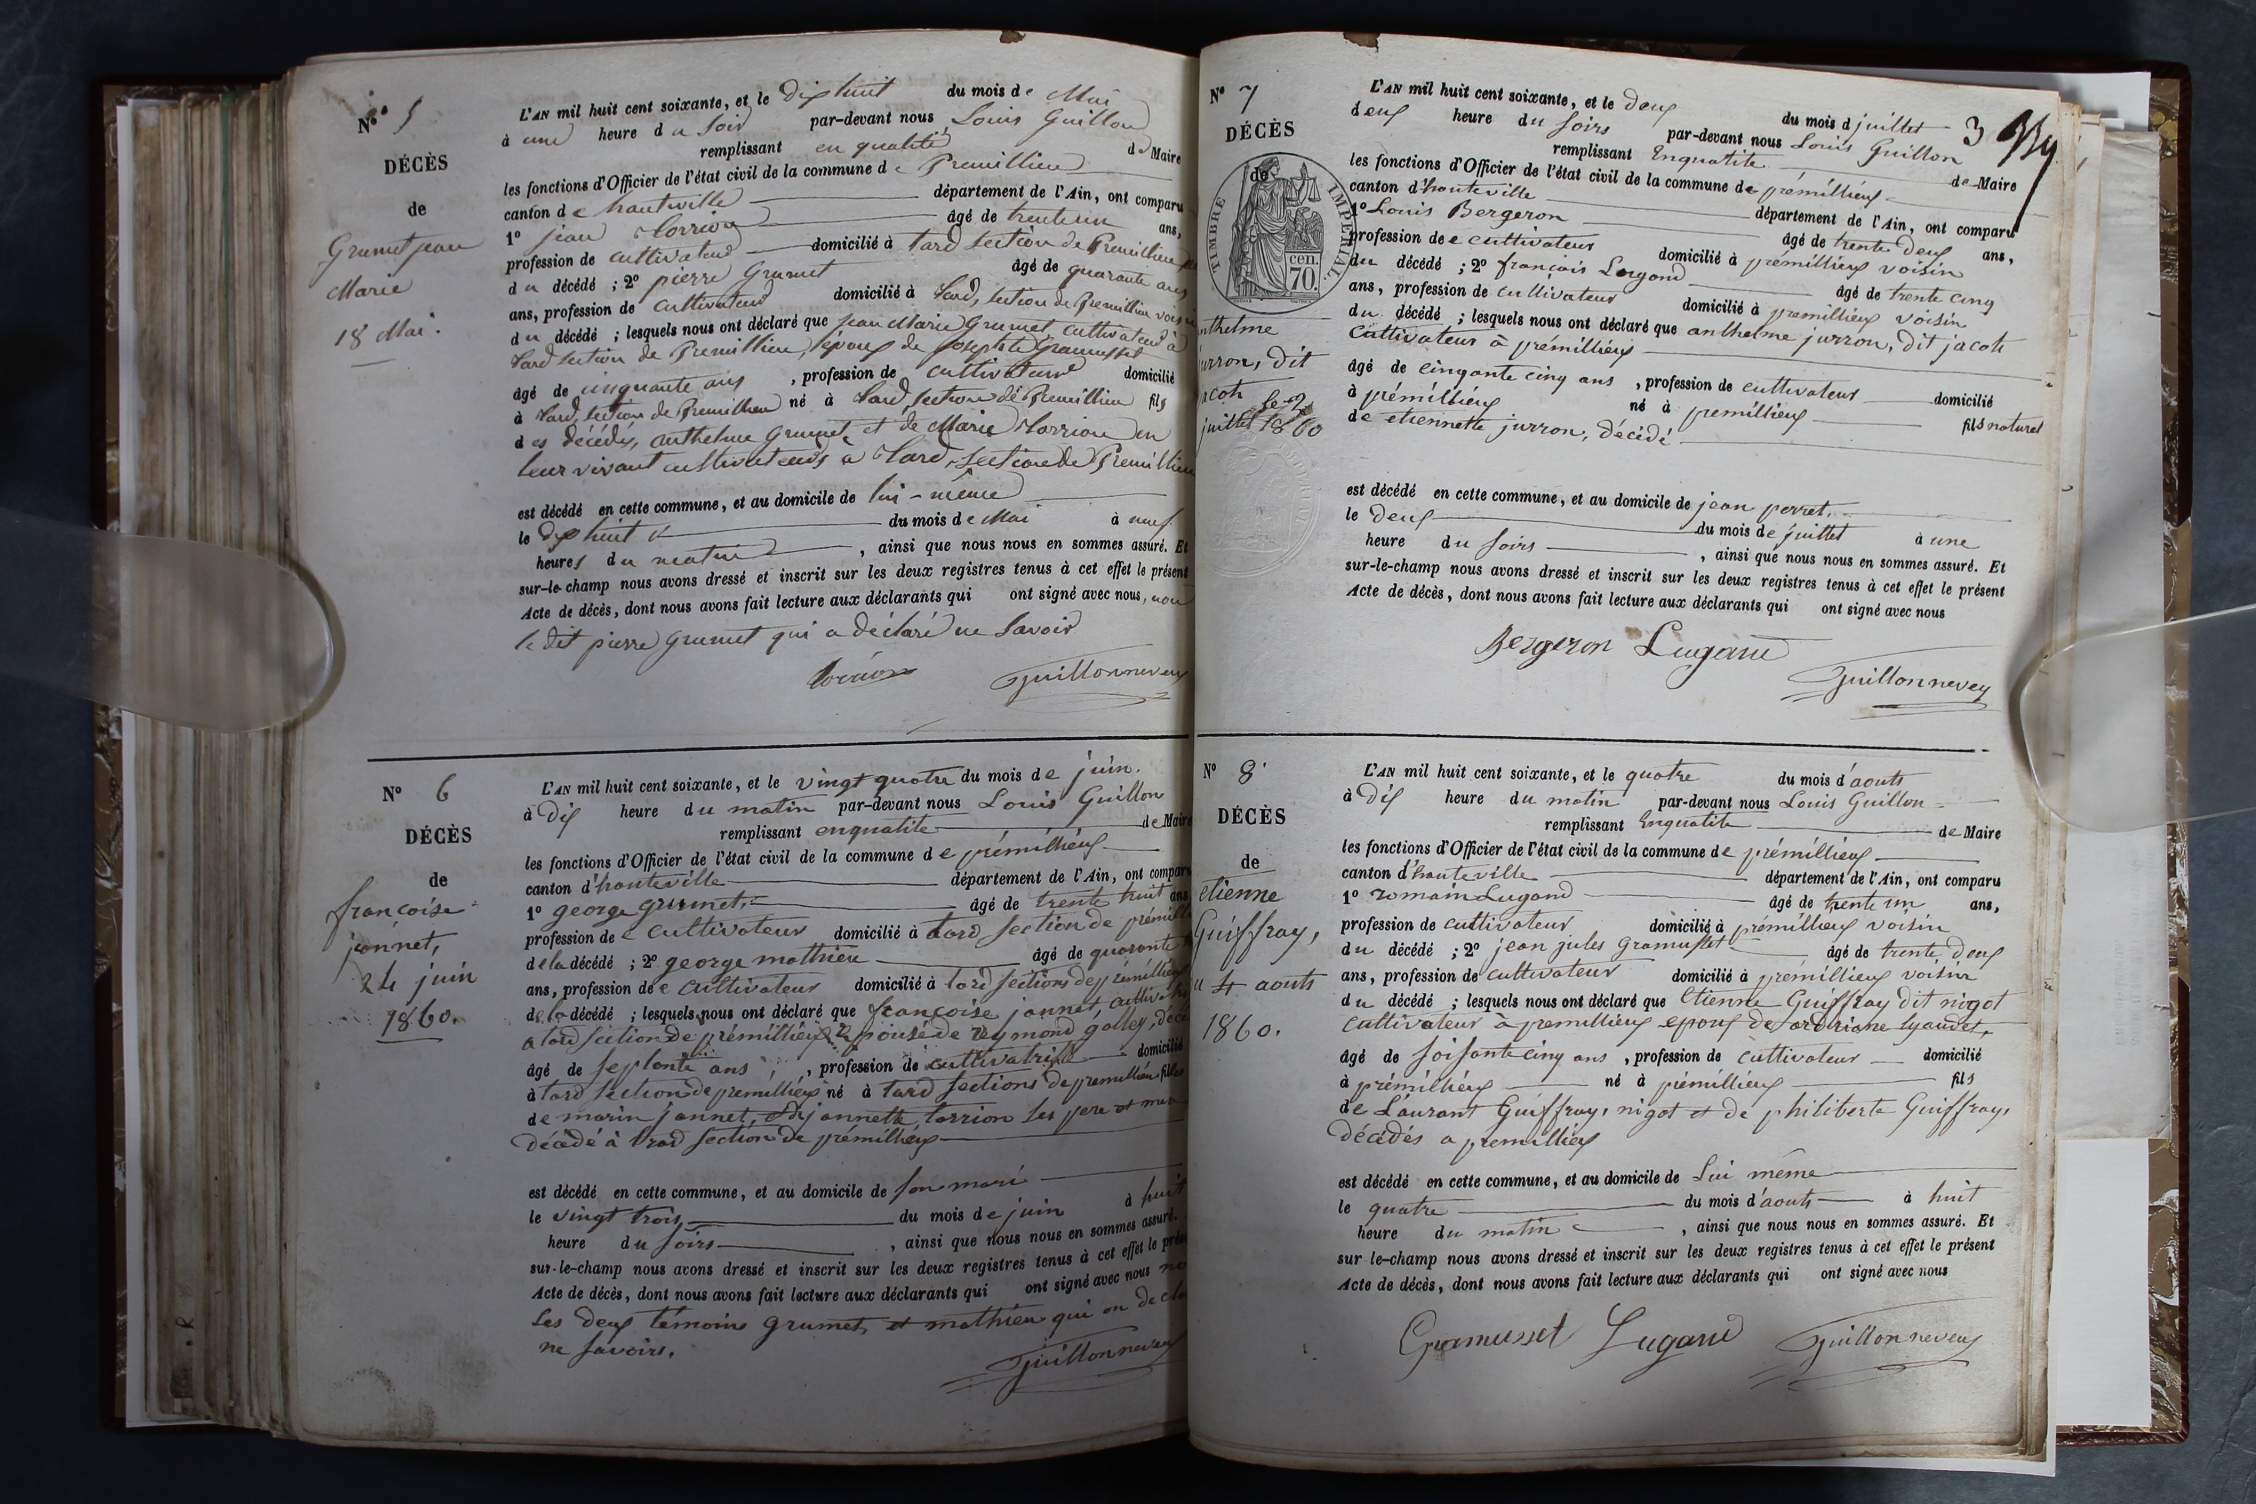 N° 5
DÉCÈS
de
Grumet jean
Marie
18 Mai.
L'AN mil huit cent soixante, et le dix huit du mois de Mai
à une heure du soir par-devant nous Louis Guillon
remplissant en qualité de Maire
les fonctions d'Officier de l'état civil de la commune de Premillieu
canton de hauteville département de l'Ain, ont comparu
1° jean Lorrion âgé de trente un ans,
profession de cultivateur domicilié à tard section de Premillieu
du décédé ; 2° pierre Grumet âgé de quarante ans
ans, profession de cultivateur domicilié à tard, section de Premillieu voisin
du décédé ; lesquels nous ont déclaré que jean Marie Grumet cultivateur à
tard section de Premillieu, époux de josephte Gramusset
âgé de cinquante ans , profession de cultivateur domicilié
à tard, section de Premillieu né à tard, section de Premillieu fils
des décédés, anthelme Grumet et de Marie Lorrion en
leur vivant cultivateurs a tard, section de Premillieu
est décédé en cette commune, et au domicile de lui-même
le dix huit du mois de Mai à neuf
heures du matin , ainsi que nous nous en sommes assuré. Et
sur-le-champ nous avons dressé et inscrit sur les deux registres tenus à cet effet le présent
Acte de décès, dont nous avons fait lecture aux déclarants qui ont signé avec nous, non
le dit pierre Grumet qui a déclaré ne savoir
Lorrion Guillon neveu
N° 6
DÉCÈS
de
françoise
jonnet,
24 juin
1860.
L'AN mil huit cent soixante, et le vingt quatre du mois de juin.
à dix heure du matin par-devant nous Louis Guillon
remplissant enqualité de Maire
les fonctions d'Officier de l'état civil de la commune de prémillieux
canton d'hauteville département de l'Ain, ont comparu
1° george grumet âgé de trente huit ans
profession de cultivateur domicilié à tard section de prémilli
de la décédé ; 2° george mathieu âgé de quarante
ans, profession de cultivateur domicilié à tard sections de prémillieux
de la décédé ; lesquels nous ont déclaré que françoise jonnet, cultivatri
a tard section de prémillieux épouse de reymond golley, déce
âgé de septente ans , profession de cultivatrise domicilié
à tard section de premillieux né à tard sections de premillieu fille
de marin jonnet, et de jonnette Lorrion les pere et mere
décédé à tard section de prémillieux
est décédé en cette commune, et au domicile de son mari
le vingt trois du mois de juin à huit
heure du soirs , ainsi que nous nous en sommes assuré.
sur-le-champ nous avons dressé et inscrit sur les deux registres tenus à cet effet le prés
Acte de décès, dont nous avons fait lecture aux déclarants qui ont signé avec nous non
les deux témoins grumet et mathieu qui on decla
ne savoirs.
Guillon neveu
3
N° 7
DÉCÈS
de
TIMBRE IMPÉRIAL.
cen.
70.
nthelme
urron, dit
acoh le 2
juillet 1860
L'AN mil huit cent soixante, et le deux du mois d juillet
deux heure du soirs par-devant nous Louis Guillon
remplissant Enqualité de Maire
les fonctions d'Officier de l'état civil de la commune de prémillieux
canton d'hauteville département de l'Ain, ont comparu
1° Louis Bergeron âgé de trente deux ans,
profession de cultivateur domicilié à prémillieux voisin
du décédé ; 2° françois Lugand âgé de trente cinq
ans, profession de cultivateur domicilié à premillieux voisin
du décédé ; lesquels nous ont déclaré que anthelme jurron, dit jacoh
cultivateur à prémillieux
âgé de cinqante cinq ans , profession de cultivateur domicilié
à prémillieux né à premillieux fils naturel
de etiennette jurron, décédé
est décédé en cette commune, et au domicile de jean perret.
le deux du mois de juillet à une
heure du soirs , ainsi que nous nous en sommes assuré. Et
sur-le-champ nous avons dressé et inscrit sur les deux registres tenus à cet effet le présent
Acte de décès, dont nous avons fait lecture aux déclarants qui ont signé avec nous
Bergeron Lugand
Guillon neveu
N° 8
DÉCÈS
de
etienne
Guiffray,
4 aouts
1860.
L'AN mil huit cent soixante, et le quatre du mois d'aouts
à dix heure du matin par-devant nous Louis Guillon
remplissant Enqualité de Maire
les fonctions d'Officier de l'état civil de la commune de prémillieux
canton d'hauteville département de l'Ain, ont comparu
1° romain Lugand âgé de trente un ans,
profession de cultivateur domicilié à prémillieux voisin
du décédé ; 2° jean jules Gramusset âgé de trente deux
ans, profession de cultivateur domicilié à prémillieux voisin
du décédé ; lesquels nous ont déclaré que Etienne Guiffray dit nigot
cultivateur à premillieux epoux de ordriane lyaudet
âgé de soisante cinq ans , profession de cultivateur domicilié
à prémillieux né à prémillieux fils
de Laurant Guiffray, nigot et de philiberte Guiffray,
décédés a premillieux
est décédé en cette commune, et au domicile de Lui même
le quatre du mois d'aouts à huit
heure du matin , ainsi que nous nous en sommes assuré. Et
sur le-champ nous avons dressé et inscrit sur les deux registres tenus à cet effet le présent
Acte de décès, dont nous avons fait lecture aux déclarants qui ont signé avec nous
Gramusset Lugand Guillon neveu